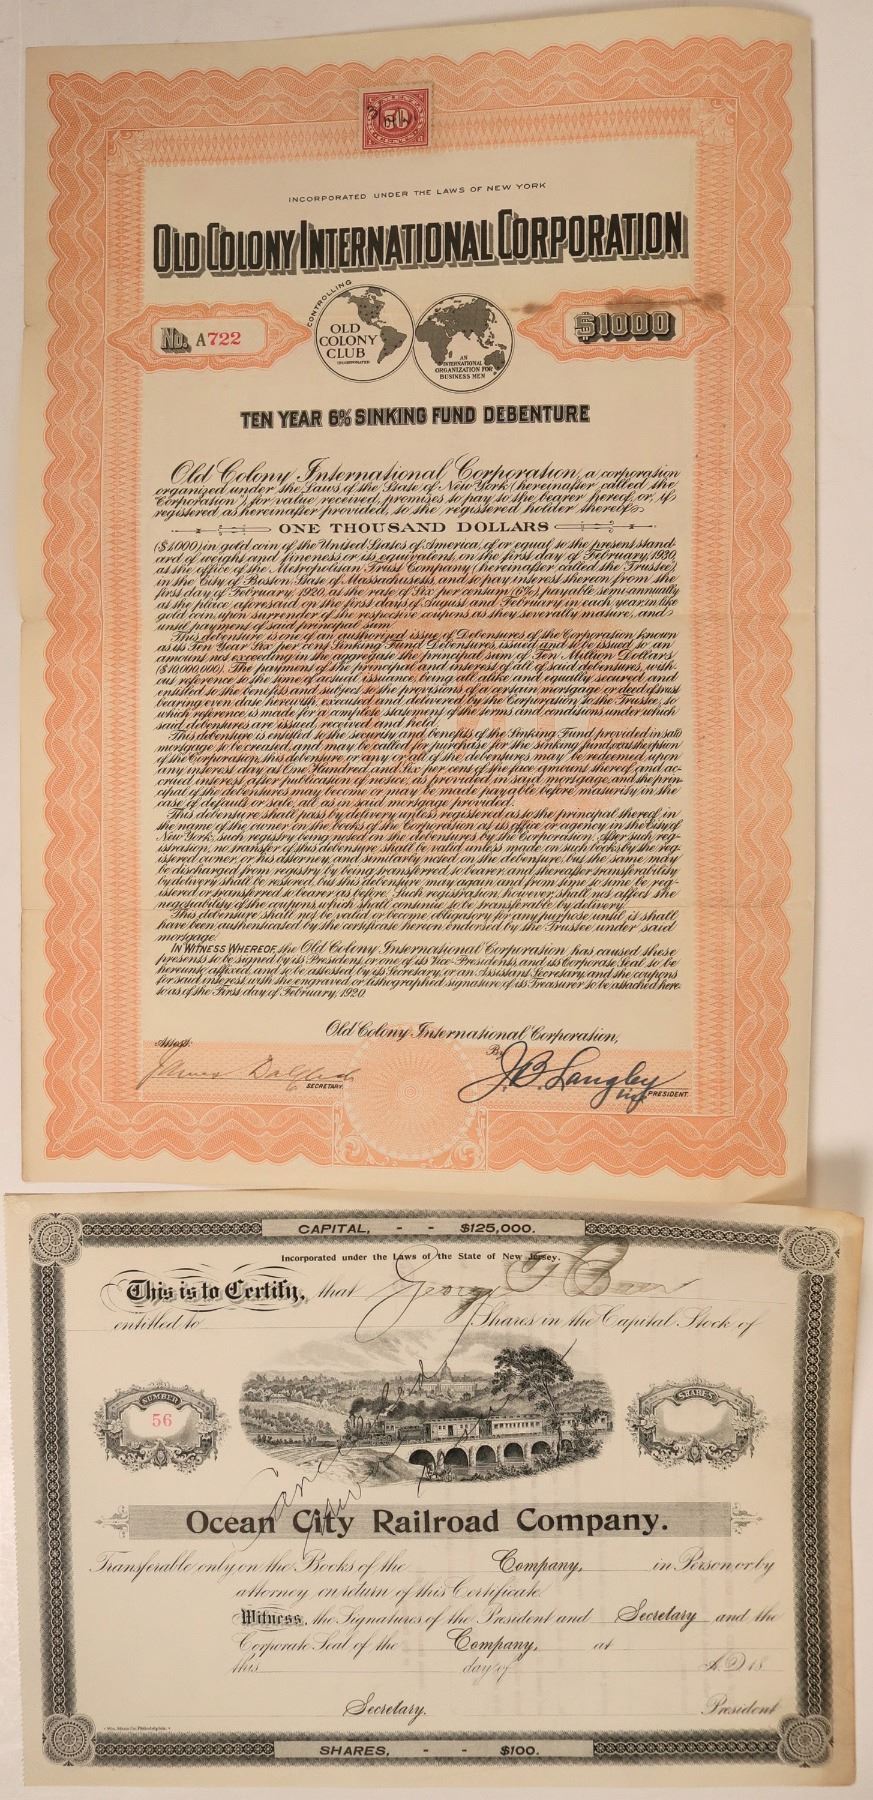 50
CENTS
INCORPORATED UNDER THE LAWS OF NEW YORK
OLD COLONY INTERNATIONAL CORPORATION
CONTROLLING
No. A722
OLD
COLONY
CLUB
INCORPORATED
AN
INTERNATIONAL
ORGANIZATION FOR
BUSINESS MEN
$1000
TEN YEAR 6% SINKING FUND DEBENTURE
Old Colony International Corporation, a corporation
organized under the Laws of the State of New York (hereinafter called the
"Corporation") for value received, promises to pay to the bearer hereof, or, if
registered as hereinafter provided, to the registered holder thereof
ONE THOUSAND DOLLARS
($1000) in gold coin of the United States of America, of or equal to the present stand-
ard of weight and fineness or its equivalent, on the first day of February, 1930,
at the office of the Metropolitan Trust Company (hereinafter called the Trustee)
in the City of Boston, State of Massachusetts, and to pay interest thereon from the
first day of February, 1920, at the rate of Six per centum (6%), payable semi-annually
at the place aforesaid on the first days of August and February in each year, in like
gold coin, upon surrender of the respective coupons as they severally mature, and
until payment of said principal sum.
This debenture is one of an authorized issue of Debentures of the Corporation known
as its Ten Year Six per cent Sinking Fund Debentures, issued and to be issued to an
amount not exceeding in the aggregate the principal sum of Ten Million Dollars
($10,000,000). The payment of the principal and interest of all of said debentures, with-
out reference to the time of actual issuance, being all alike and equally secured and
entitled to the benefits and subject to the provisions of a certain mortgage or deed of trust
bearing even date herewith, executed and delivered by the Corporation to the Trustee, to
which reference is made for a complete statement of the terms and conditions under which
said debentures are issued, received and held.
This debenture is entitled to the security and benefits of the Sinking Fund provided in said
mortgage to be created, and may be called for purchase for the sinking fund, at the option
of the Corporation, this debenture or any or all of the debentures may be redeemed upon
any interest day at One Hundred and Six per cent of the face amount thereof and ac-
crued interest, after publication of notice, as provided in said mortgage, and the prin-
cipal of the debentures may become or may be made payable before maturity in the
case of default or sale, all as in said mortgage provided.
This debenture shall pass by delivery unless registered as to the principal thereof, in
the name of the owner on the books of the Corporation at its office or agency in the City of
New York, such registry being noted on the debentures by the Corporation. After such reg-
istration, no transfer of this debenture shall be valid unless made on such books by the reg-
istered owner, or his attorney, and similarly noted on the debenture, but the same may
be discharged from registry by being transferred to bearer, and thereafter transferability
by delivery shall be restored, but this debenture may again, and from time to time be reg-
istered or transferred to bearer as before. Such registration, however, shall not affect the
negotiability of the coupons, which shall continue to be transferable by delivery.
This debenture shall not be valid or become obligatory for any purpose until it shall
have been authenticated by the certificate hereon endorsed by the Trustee under said
mortgage.
IN WITNESS WHEREOF, the Old Colony International Corporation has caused these
presents to be signed by its President, or one of its Vice-Presidents, and its Corporate Seal to be
hereunto affixed, and to be attested by its Secretary, or an Assistant Secretary, and the coupons
for said interest, with the engraved or lithographed signature of its Treasurer to be attached here
to as of the First day of February, 1920.
Old Colony International Corporation,
Attest:
By
SECRETARY.
J.B. Langley
PRESIDENT.
CAPITAL, - - $125,000.
Incorporated under the Laws of the State of New Jersey.
This is to Certify, that George F Baer
entitled to Shares in the Capital Stock of
NUMBER
56
SHARES
Cancelled
Ocean City Railroad Company.
Transferable only on the Books of the Company, in Person or by
attorney on return of this Certificate.
Witness, the Signatures of the President and Secretary and the
Corporate Seal of the Company, at
this day of A.D. 18
Secretary. President
Wm. Mann Co. Philadelphia.
SHARES, - - $100.